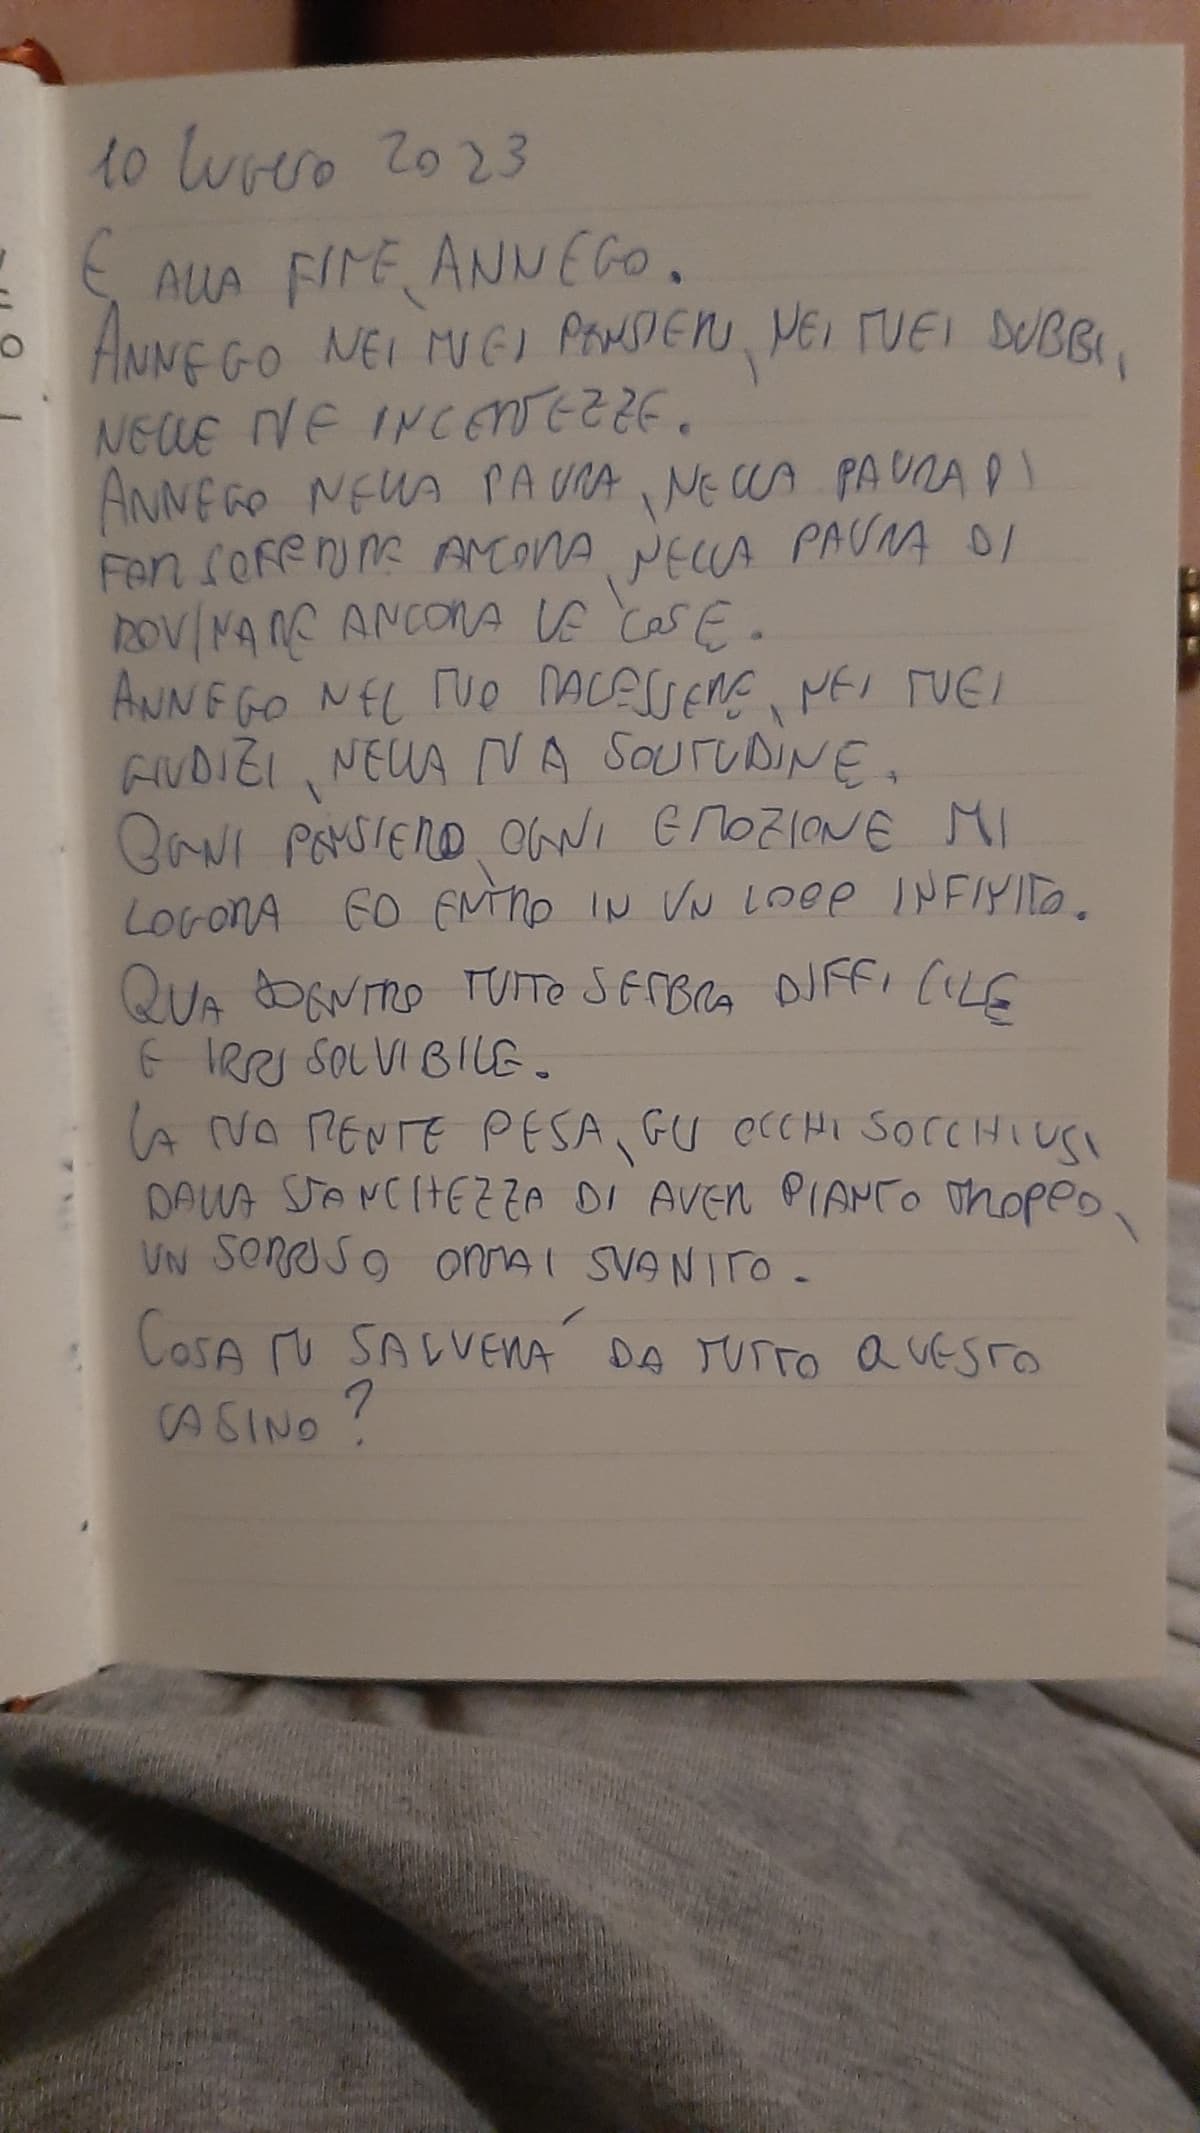 10 Luglio 2023
E ALLA FINE, ANNEGO.
ANNEGO NEI MIEI PENSIERI, NEI MIEI DUBBI,
NELLE MIE INCERTEZZE.
ANNEGO NELLA PAURA, NELLA PAURA DI
FAR SOFFRIRE ANCORA, NELLA PAURA DI
ROVINARE ANCORA LE COSE.
ANNEGO NEL MIO MALESSERE, NEI MIEI
GIUDIZI, NELLA MIA SOLITUDINE.
OGNI PENSIERO, OGNI EMOZIONE MI
LOGORA ED ENTRO IN UN LOOP INFINITO.
QUA DENTRO TUTTO SEMBRA DIFFICILE
E IRRISOLVIBILE.
LA MIA MENTE PESA, GLI OCCHI SOCCHIUSI
DALLA STANCHEZZA DI AVER PIANTO TROPPO,
UN SORRISO ORMAI SVANITO.
COSA MI SALVERÀ DA TUTTO QUESTO
CASINO?